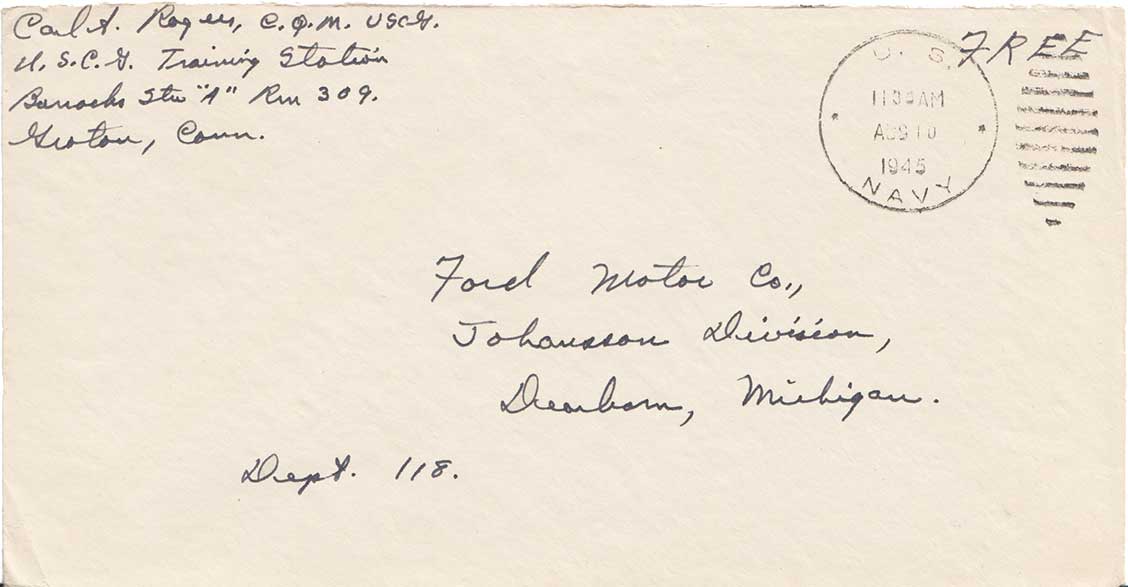 Carl A. Rogers, C.Q.M. USCG.
U.S.C.G. Training Station
Barracks "A" Rm 309.
Groton, Conn.
FREE
U. S.
AM
AUG 10
1945
NAVY
Ford Motor Co.,
Johansson Division,
Dearborn, Michigan.
Dept. 118.